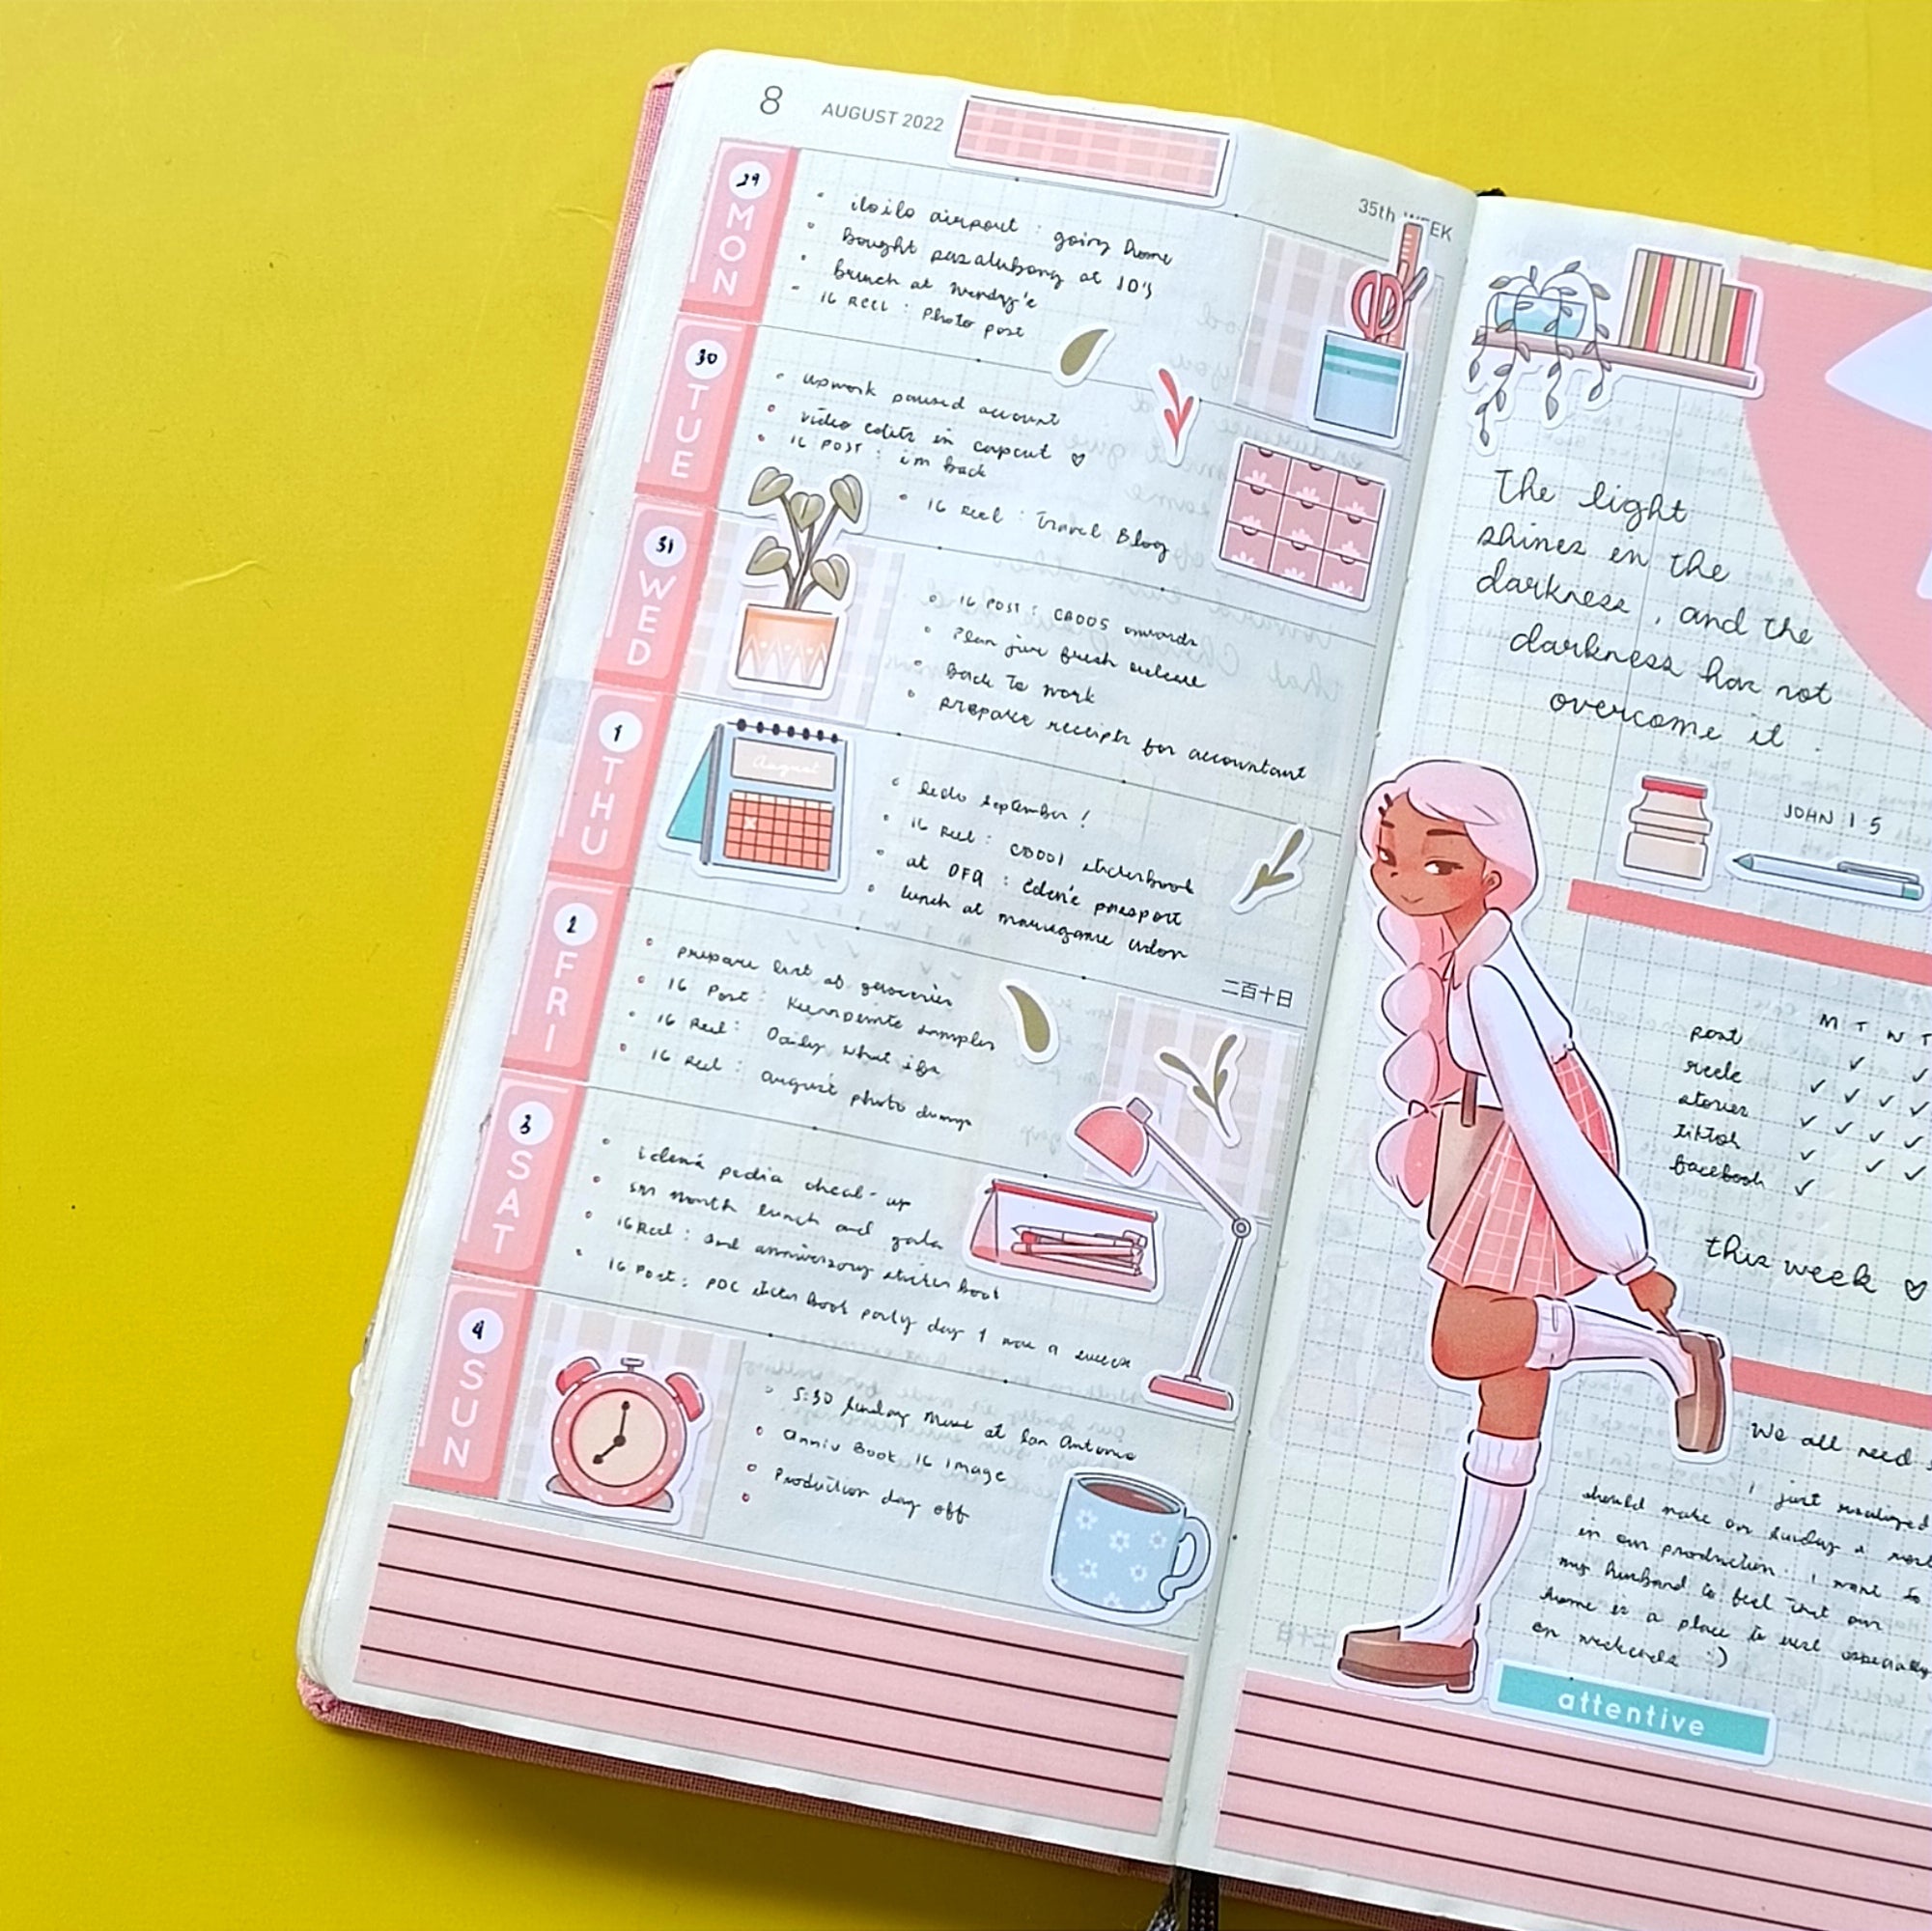 8 AUGUST 2022
35th WEEK
29 MON
iloilo airport : going home
Bought pasalubong at JD's
brunch at Wendy's
IG REEL : Photo post
30 TUE
upwork paused account
video edits in capcut ♡
IG POST : i'm back
IG Reel : Travel Blog
31 WED
IG POST : CB005 onwards
Plan june fresh release
Back to work
prepare receipts for accountant
1 THU
August
hello september !
IG Reel : CB001 stickerbook
at DFA : Eden's passport
lunch at marugame udon
二百十日
2 FRI
prepare list of groceries
IG Post : samples
IG Reel : Daily what ifs
IG Reel : August photo dumps
3 SAT
pedia check-up
SM North lunch and gala
IG Reel : 2nd anniversary sticker book
IG Post : PDC sticker book party day 1 was a success
4 SUN
5:30 Sunday Mass at San Antonio
Anniv Book IG Image
Production day off
The light
shines in the
darkness, and the
darkness has not
overcome it.
JOHN 1 5
M T W T
post ✓ ✓
reels ✓ ✓ ✓ ✓
stories ✓ ✓ ✓ ✓
tiktok ✓ ✓ ✓
facebook ✓
this week ♡
We all need
I just realized
should make our sunday a rest
in our production. I want to
my husband to feel that our
home is a place to rest especially
on weekends :)
attentive